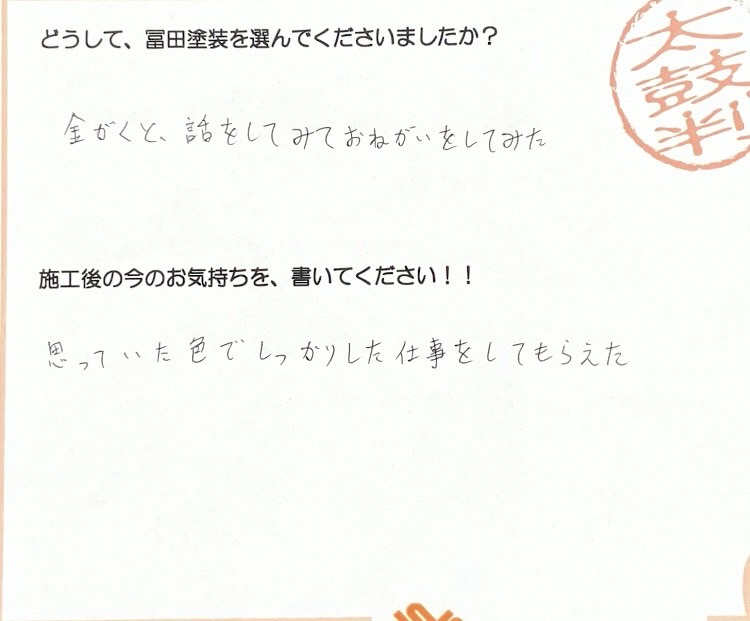 どうして、冨田塗装を選んでくださいましたか？
太鼓判
金がくと、話をしてみておねがいをしてみた
施工後の今のお気持ちを、書いてください！！
思っていた色でしっかりした仕事をしてもらえた